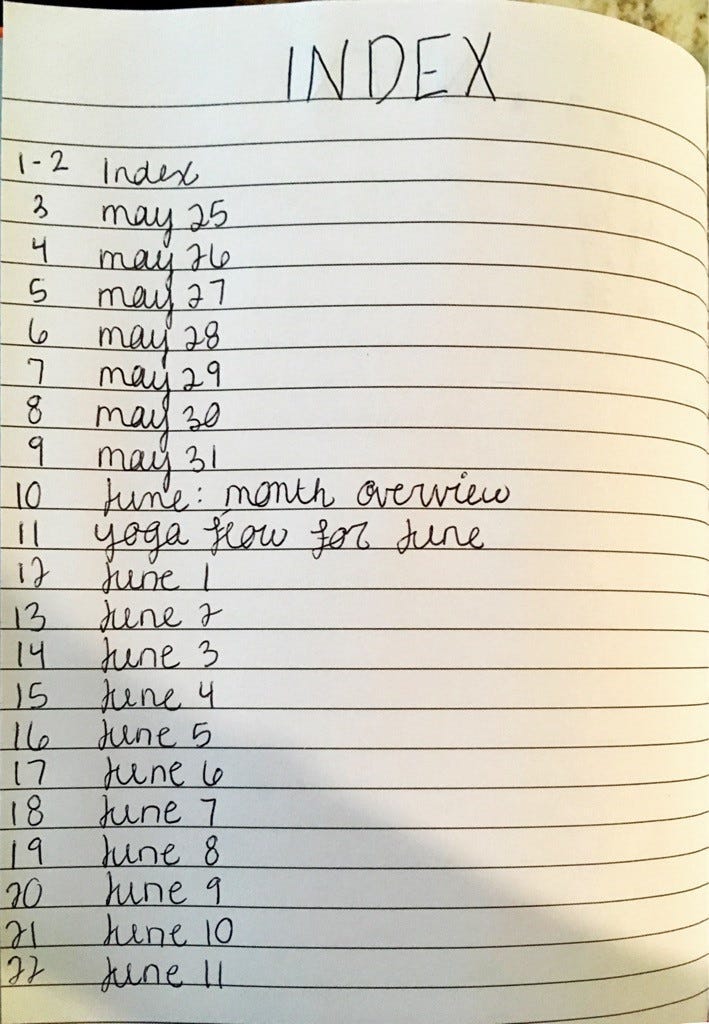 INDEX
1-2 Index
3 may 25
4 may 26
5 may 27
6 may 28
7 may 29
8 may 30
9 may 31
10 June: month overview
11 yoga flow for June
12 June 1
13 June 2
14 June 3
15 June 4
16 June 5
17 June 6
18 June 7
19 June 8
20 June 9
21 June 10
22 June 11